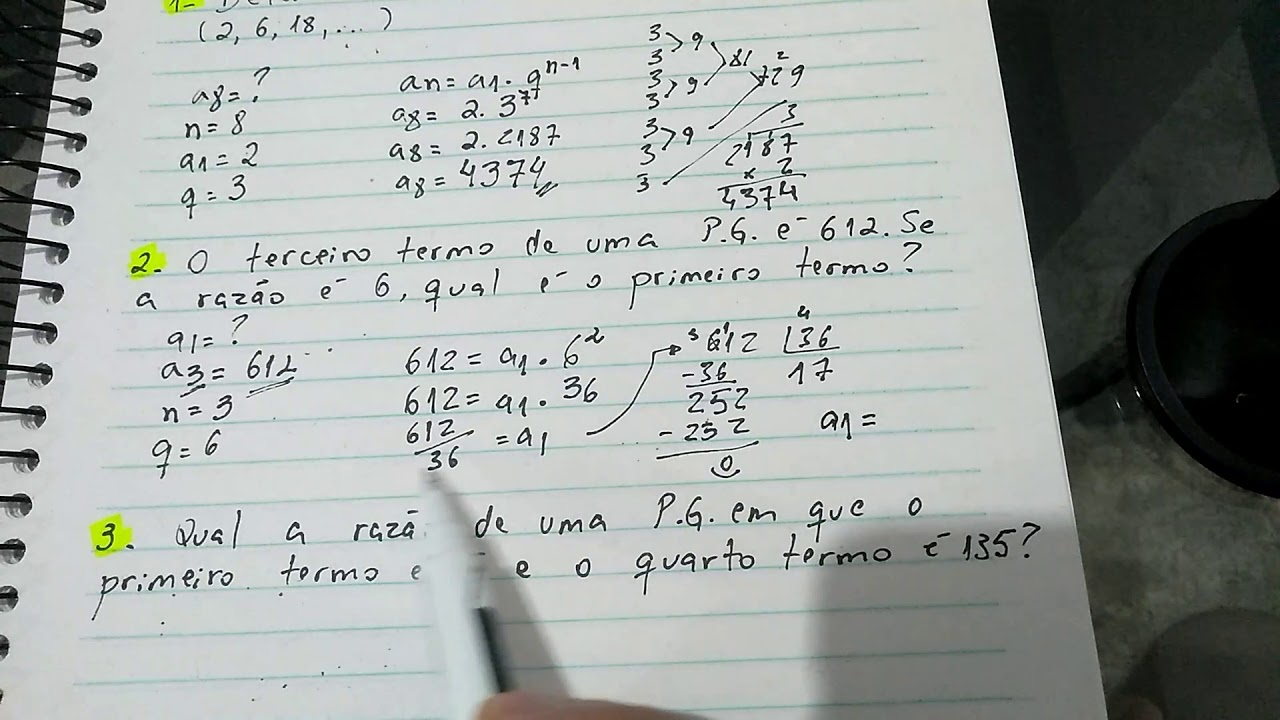 1-
(2, 6, 18, ... )
a8 = ?
n = 8
a1 = 2
q = 3
an = a1 . q^n-1
a8 = 2. 3^7
a8 = 2. 2187
a8 = 4374
3
3 > 9
3
3 > 9
81
3
3 > 9
3
2
729
3
2187
x 2
4374
2. O terceiro termo de uma P.G. é 612. Se
a razão é 6, qual é o primeiro termo?
a1 = ?
a3 = 612
n = 3
q = 6
612 = a1 . 6²
612 = a1 . 36
612
36
= a1
612 36
-36 17
252
- 252
0
a1 =
3. Qual a de uma P.G. em que o
primeiro termo e o quarto termo é 135?